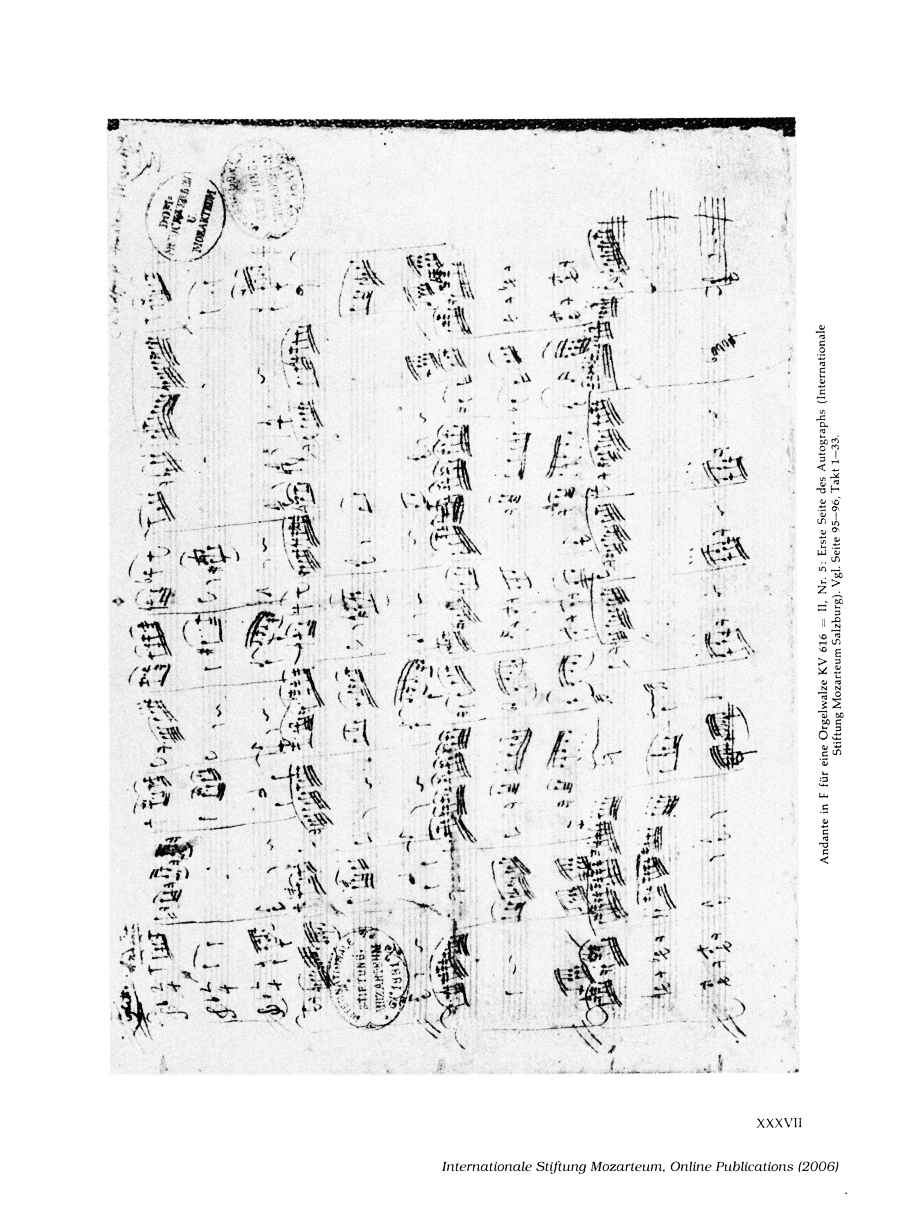 MOZARTEUM
INTERNATIONALE
STIFTUNG:
MOZARTEUM
Andante in F für eine Orgelwalze KV 616 = II, Nr. 5: Erste Seite des Autographs (Internationale
Stiftung Mozarteum Salzburg). Vgl. Seite 95—96, Takt 1—33.
XXXVII
Internationale Stiftung Mozarteum, Online Publications (2006)